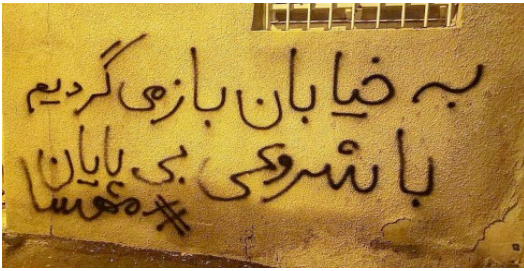 به خیابان باز می گردیم
با شروعی بی پایان
#مهسا